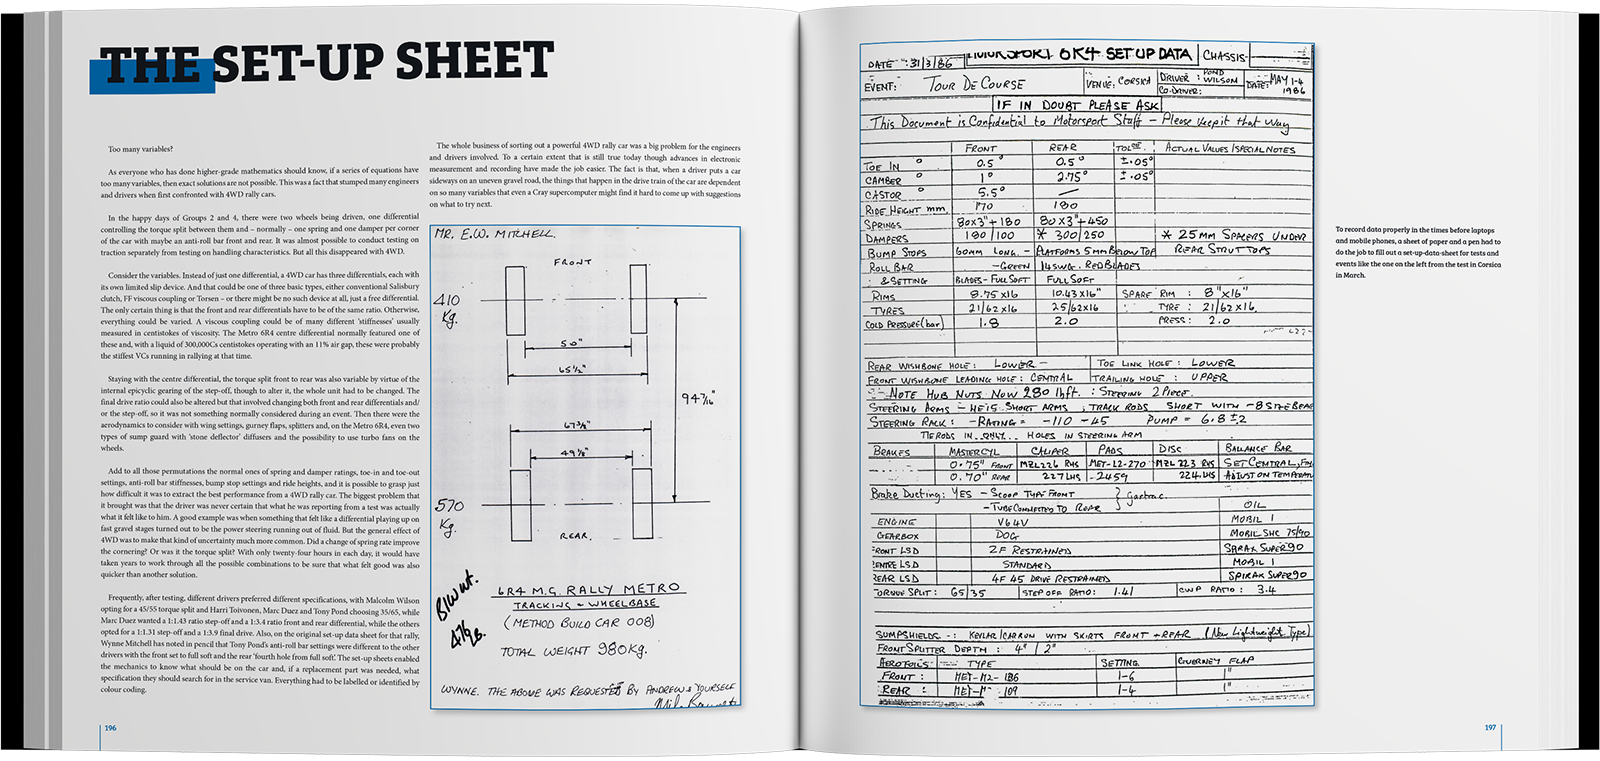 THE SET-UP SHEET
Too many variables?
As everyone who has done higher-grade mathematics should know, if a series of equations have
too many variables, then exact solutions are not possible. This was a fact that stumped many engineers
and drivers when first confronted with 4WD rally cars.
In the happy days of Groups 2 and 4, there were two wheels being driven, one differential
controlling the torque split between them and – normally – one spring and one damper per corner
of the car with maybe an anti-roll bar front and rear. It was almost possible to conduct testing on
traction separately from testing on handling characteristics. But all this disappeared with 4WD.
Consider the variables. Instead of just one differential, a 4WD car has three differentials, each with
its own limited slip device. And that could be one of three basic types, either conventional Salisbury
clutch, FF viscous coupling or Torsen – or there might be no such device at all, just a free differential.
The only certain thing is that the front and rear differentials have to be of the same ratio. Otherwise,
everything could be varied. A viscous coupling could be of many different 'stiffnesses' usually
measured in centistokes of viscosity. The Metro 6R4 centre differential normally featured one of
these and, with a liquid of 300,000Cs centistokes operating with an 11% air gap, these were probably
the stiffest VCs running in rallying at that time.
Staying with the centre differential, the torque split front to rear was also variable by virtue of the
internal epicyclic gearing of the step-off, though to alter it, the whole unit had to be changed. The
final drive ratio could also be altered but that involved changing both front and rear differentials and/
or the step-off, so it was not something normally considered during an event. Then there were the
aerodynamics to consider with wing settings, gurney flaps, splitters and, on the Metro 6R4, even two
types of sump guard with 'stone deflector' diffusers and the possibility to use turbo fans on the
wheels.
Add to all those permutations the normal ones of spring and damper ratings, toe-in and toe-out
settings, anti-roll bar stiffnesses, bump stop settings and ride heights, and it is possible to grasp just
how difficult it was to extract the best performance from a 4WD rally car. The biggest problem that
it brought was that the driver was never certain that what he was reporting from a test was actually
what it felt like to him. A good example was when something that felt like a differential playing up on
fast gravel stages turned out to be the power steering running out of fluid. But the general effect of
4WD was to make that kind of uncertainty much more common. Did a change of spring rate improve
the cornering? Or was it the torque split? With only twenty-four hours in each day, it would have
taken years to work through all the possible combinations to be sure that what felt good was also
quicker than another solution.
Frequently, after testing, different drivers preferred different specifications, with Malcolm Wilson
opting for a 45/55 torque split and Harri Toivonen, Marc Duez and Tony Pond choosing 35/65, while
Marc Duez wanted a 1:1.43 ratio step-off and a 1:3.4 ratio front and rear differential, while the others
opted for a 1:1.31 step-off and a 1:3.9 final drive. Also, on the original set-up data sheet for that rally,
Wynne Mitchell has noted in pencil that Tony Pond's anti-roll bar settings were different to the other
drivers with the front set to full soft and the rear 'fourth hole from full soft'. The set-up sheets enabled
the mechanics to know what should be on the car and, if a replacement part was needed, what
specification they should search for in the service van. Everything had to be labelled or identified by
colour coding.
The whole business of sorting out a powerful 4WD rally car was a big problem for the engineers
and drivers involved. To a certain extent that is still true today though advances in electronic
measurement and recording have made the job easier. The fact is that, when a driver puts a car
sideways on an uneven gravel road, the things that happen in the drive train of the car are dependent
on so many variables that even a Cray supercomputer might find it hard to come up with suggestions
on what to try next.
MR. E.W. MITCHELL.
FRONT
410 Kg.
50"
65 1/2"
94 7/16"
67 3/8"
49 1/8"
570 Kg.
REAR.
6R4 M.G. RALLY METRO
TRACKING & WHEELBASE
(METHOD BUILD CAR 008)
TOTAL WEIGHT 980Kg.
WYNNE. THE ABOVE WAS REQUESTED BY ANDREW & YOURSELF
196
MOTORSPORT 6R4 SET UP DATA CHASSIS
DATE : 31/3/86
EVENT: TOUR DE COURSE VENUE: CORSICA DRIVER: POND WILSON CO-DRIVER: DATE: MAY 1-4 1986
IF IN DOUBT PLEASE ASK
This Document is Confidential to Motorsport Staff – Please keep it that way
FRONT REAR TOLCE. ACTUAL VALUES/SPECIAL NOTES
TOE IN ° 0.5° 0.5° ±.05°
CAMBER ° 1° 2.75° ±.05°
CASTOR ° 5.5° —
RIDE HEIGHT mm. 170 180
SPRINGS 80x3"+180 80x3"+450
DAMPERS 180/100 * 300/250 * 25MM SPACERS UNDER
BUMP STOPS 60MM LONG. – PLATFORMS 5MM BELOW TOP REAR STRUT TOPS
ROLL BAR – GREEN 14SWG. RED BLADES
& SETTING BLADES – FULL SOFT FULL SOFT
RIMS 8.75x16 10.43x16" SPARE RIM : 8"x16"
TYRES 21/62x16 25/62x16 TYRE : 21/62x16.
COLD PRESSURE (bar) 1.8 2.0 PRESS: 2.0
REAR WISHBONE HOLE: LOWER – TOE LINK HOLE: LOWER
FRONT WISHBONE LEADING HOLE: CENTRAL TRAILING HOLE: UPPER
NOTE HUB NUTS NOW 280 lbft. : STEERING 2 PIECE.
STEERING ARMS – HE15 SHORT ARMS, TRACK RODS SHORT WITH -8 SIZE BEAR
STEERING RACK: – RATING = -110 -45 PUMP = 6.8 ±2
TIERODS IN ONLY HOLES IN STEERING ARM
BRAKES MASTERCYL CALIPER PADS DISC BALANCE BAR
0.75" FRONT MZL226 RHS MET-12-270 MZL 223 RHS SET CENTRAL,
0.70" REAR 227 LHS -2459 224 LHS ADJUST ON TEMPERAT
Brake Ducting: YES – SCOOP TYPE FRONT
– TUBE CONNECTED TO REAR
OIL
ENGINE V64V MOBIL 1
GEARBOX DOG MOBIL SHC 75/90
FRONT LSD 2F RESTRAINED SPIRAX SUPER 90
CENTRE LSD STANDARD MOBIL 1
REAR LSD 4F 45 DRIVE RESTRAINED SPIRAX SUPER 90
TORQUE SPLIT: 65/35 STEP OFF RATIO: 1.41 CWP RATIO: 3.4
SUMPSHIELDS -: KEVLAR/CARBON WITH SKIRTS FRONT + REAR (New Lightweight Type)
FRONT SPLITTER DEPTH : 4"/2"
AEROFOILS: TYPE SETTING GURNEY FLAP
FRONT: MET-M2-186 1-6 1"
REAR : 109 1-4 1"
To record data properly in the times before laptops
and mobile phones, a sheet of paper and a pen had to
do the job to fill out a set-up-data-sheet for tests and
events like the one on the left from the test in Corsica
in March.
197